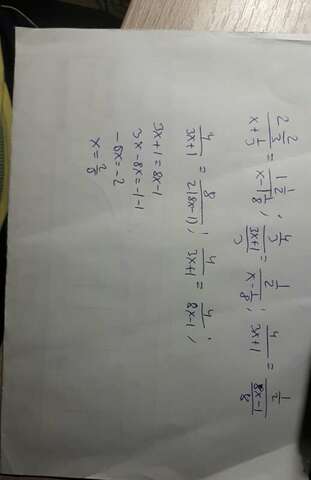 2 2/3 / (x + 1/3) = 1 1/2 / (x - 1/8); 4/3 / ((3x+1)/3) = 1/2 / (x - 1/8); 4/(3x+1) = 1/2 / ((8x-1)/8)
4/(3x+1) = 8/(2(8x-1)); 4/(3x+1) = 4/(8x-1);
3x+1=8x-1
3x-8x=-1-1
-5x=-2
x=2/5